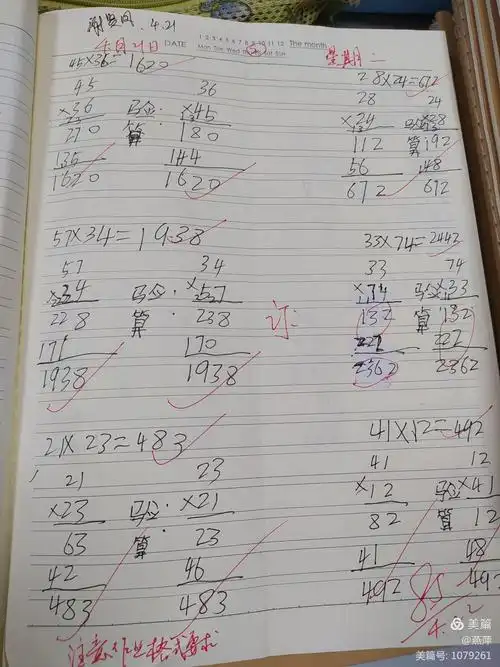 4.21
4月21日 DATE 1 2 3 4 5 6 7 8 9 10 11 12 The month 星期二
Mon Tue Wed Thu Fri Sat Sun
45×36=1620
45
×36
270
135
1620
验算:
36
×45
180
144
1620
28×24=672
28
×24
112
56
672
验算
24
×28
192
48
672
57×34=1938
57
×34
228
171
1938
验算:
34
×57
238
170
1938
订:
33×74=2442
33
×74
132
221
2362
验算
74
×33
132
222
2362
21×23=483
21
×23
63
42
483
验算:
23
×21
23
46
483
41×12=492
41
×12
82
41
492
验算
12
×41
12
48
492
85
4. 2
注意作业格式要求
美篇
@燕萍
美篇号: 1079261